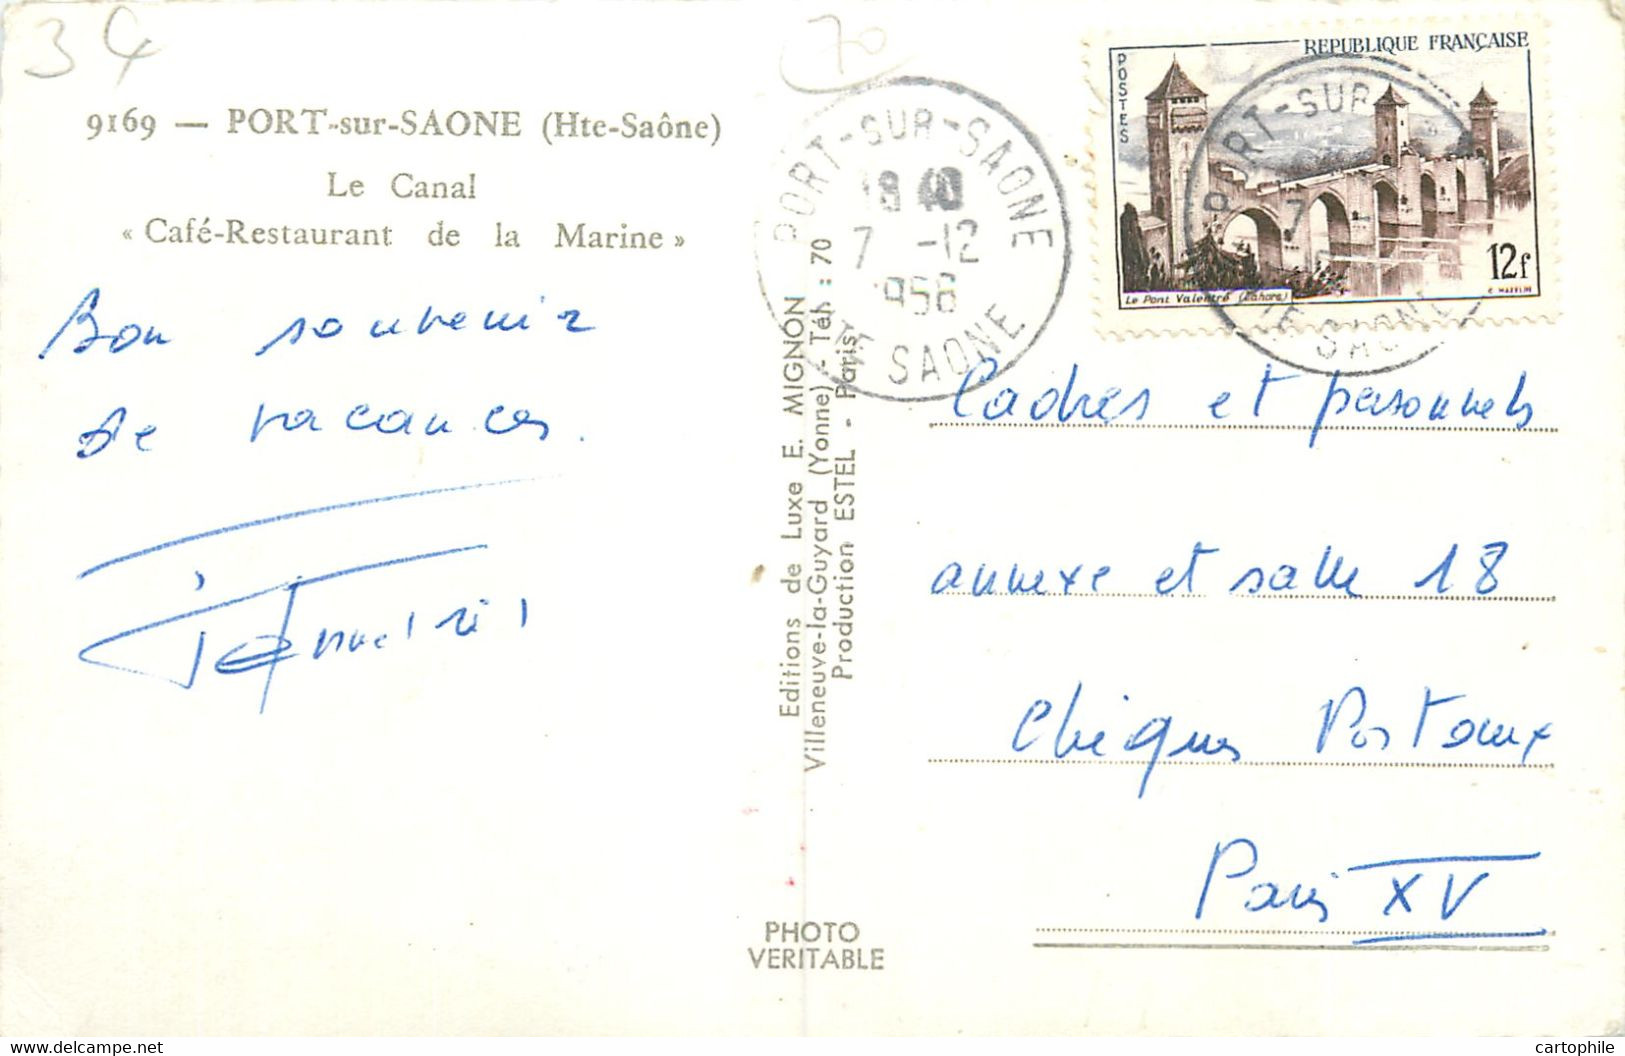 34
70
9169 — PORT-sur-SAONE (Hte-Saône)
Le Canal
« Café-Restaurant de la Marine »
Bon souvenir
de vacances.
Editions de Luxe E. MIGNON
Villeneuve-la-Guyard (Yonne) - Tél. : 70
Production ESTEL - Paris
PHOTO
VERITABLE
PORT-SUR-SAONE
18 40
7 -12
1956
HTE SAONE
REPUBLIQUE FRANÇAISE
POSTES
12f
Le Pont Valentré (Cahors)
C. MAZELIN
PORT-SUR
7
TE SAONE
Cadres et personnels
annexe et salle 18
Chèques Postaux
Paris XV
www.delcampe.net
cartophile